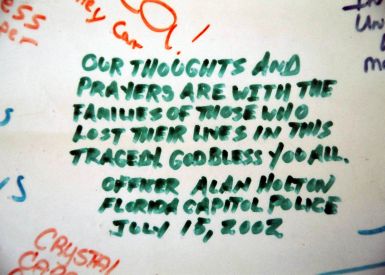 ESS
per
ney Can
!
OUR THOUGHTS AND
PRAYERS ARE WITH THE
FAMILIES OF THOSE WHO
LOST THEIR LIVES IN THIS
TRAGEDY. GOD BLESS YOU ALL.
OFFICER ALAN HOLTON
FLORIDA CAPITOL POLICE
JULY 15, 2002
CRYSTAL